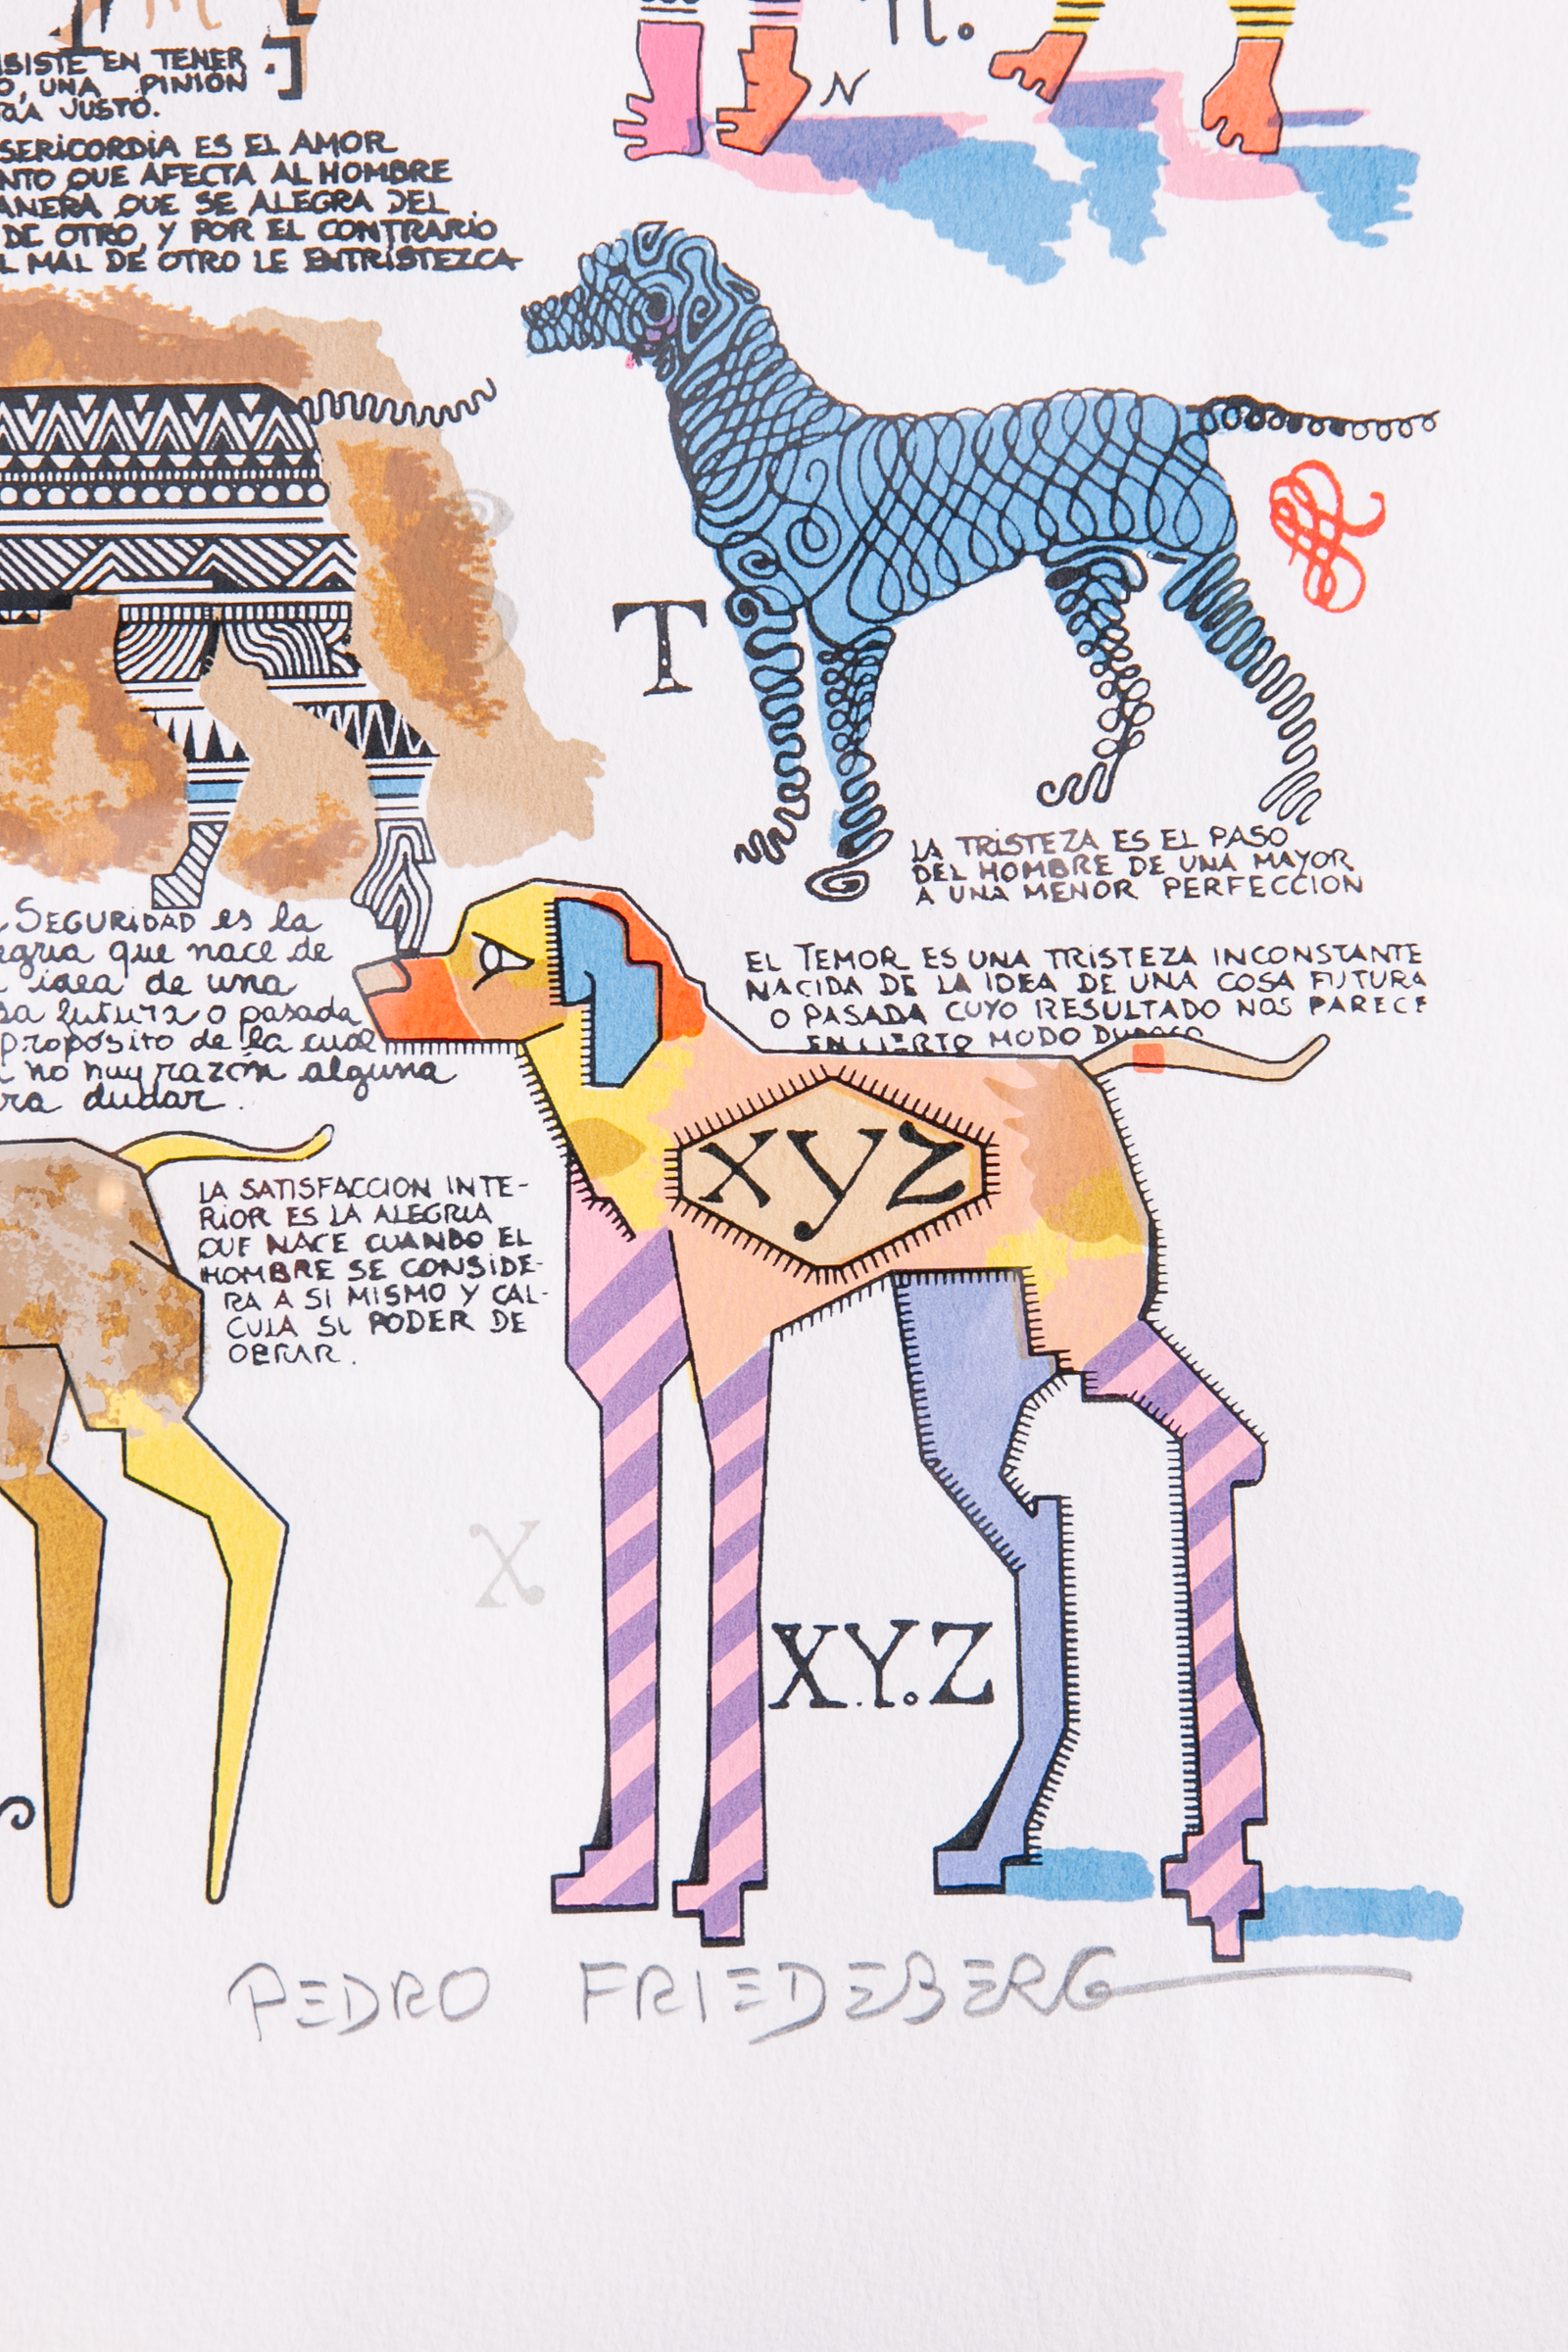 EN TENER
O, UNA PINION
JUSTO.
ES EL AMOR
QUE AFECTA AL HOMBRE
QUE SE ALEGRA DEL
DE OTRO, Y POR EL CONTRARIO
L MAL DE OTRO LE ENTRISTEZCA
n.
N
T
LA TRISTEZA ES EL PASO
DEL HOMBRE DE UNA MAYOR
A UNA MENOR PERFECCION
SEGURIDAD es la
que nace de
idea de una
futura o pasada
proposito de la cual
no hay razón alguna
dudar.
EL TEMOR ES UNA TRISTEZA INCONSTANTE
NACIDA DE LA IDEA DE UNA COSA FUTURA
O PASADA CUYO RESULTADO NOS PARECE
EN CIERTO MODO
xyz
LA SATISFACCION INTE-
RIOR ES LA ALEGRIA
QUE NACE CUANDO EL
HOMBRE SE CONSIDE-
RA A SI MISMO Y CAL-
CULA SU PODER DE
OBRAR.
X
X.Y.Z
PEDRO FRIEDEBERG